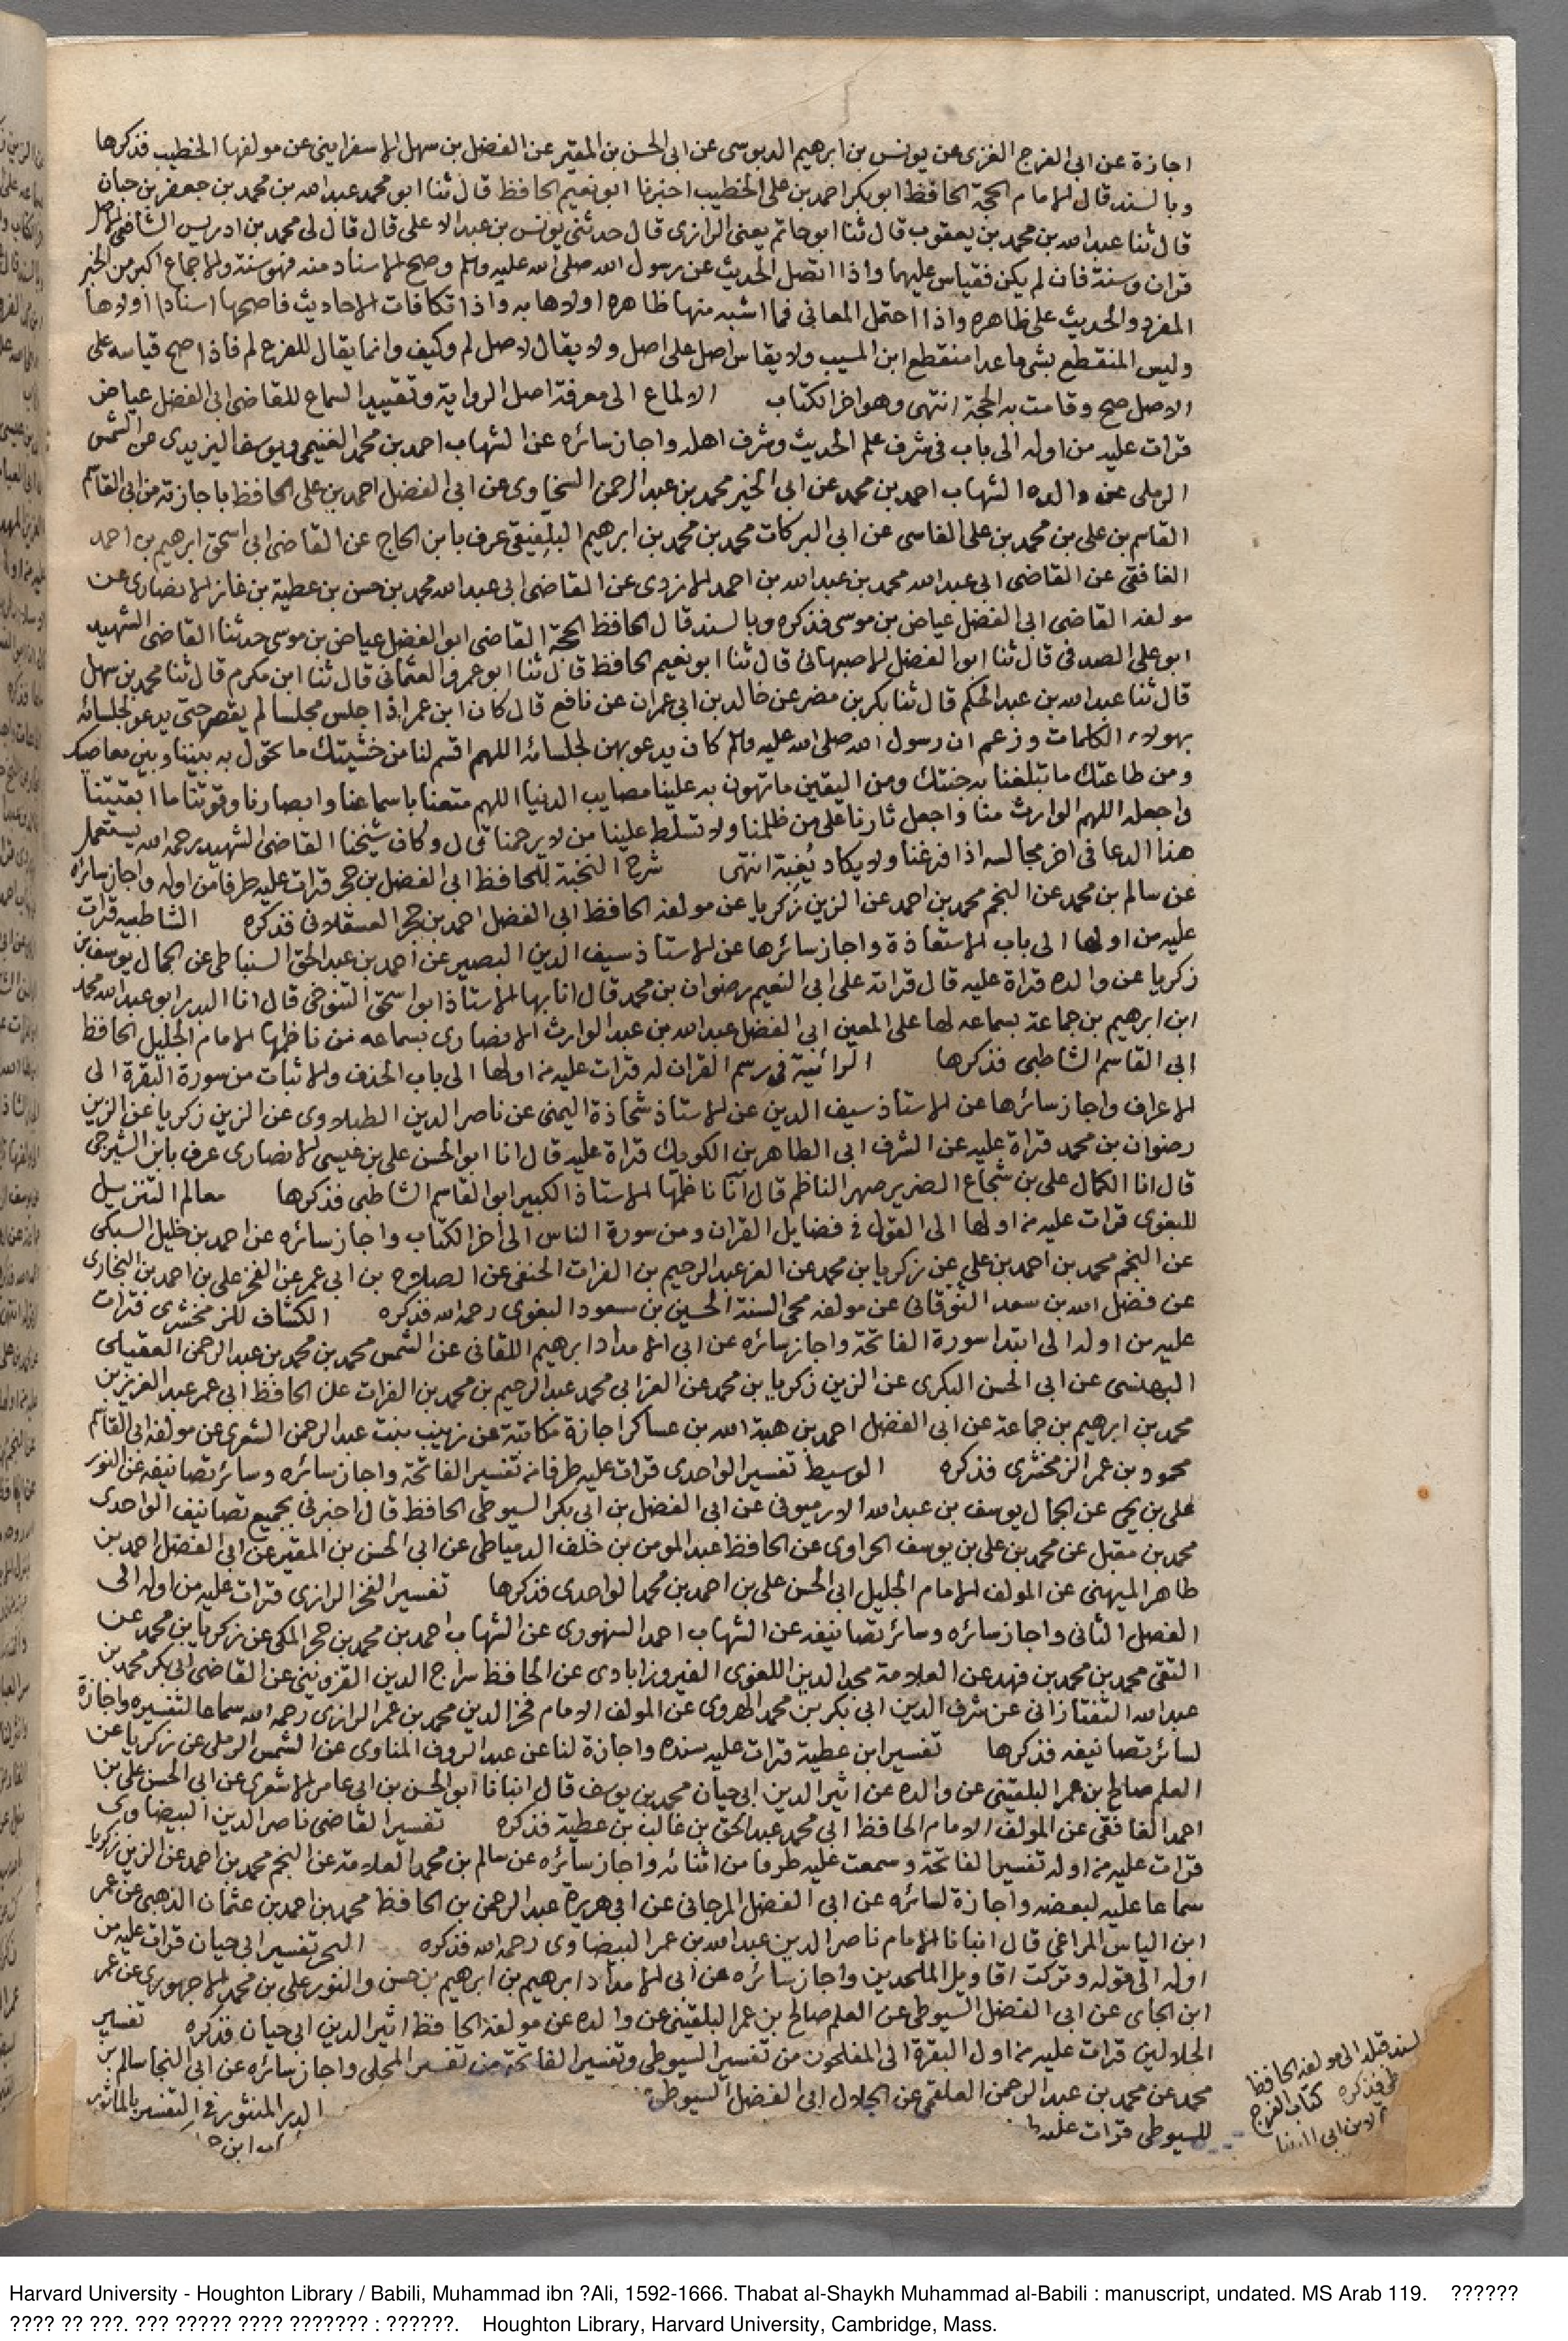 اجازة عن ابي الفرج الغزى عن يونس بن ابرهيم الدبوسى عن ابى الحسن بن المقير عن الفضل بن سهل الاسفراينى عن مولفها الخطيب فذكرها
وبالسند قال الامام الحجة الحافظ ابو بكر احمد بن على الخطيب اخبرنا ابو نعيم الحافظ قال ثنا ابو محمد عبد الله بن محمد بن جعفر بن حبان
قال ثنا عبد الله بن محمد بن يعقوب قال ثنا ابو حاتم يعنى الرازى قال حدثنى يونس بن عبد الاعلى قال قال لى محمد بن ادريس الشافعى الاصل
قران وسنة فان لم يكن فقياس عليهما واذا اتصل الحديث عن رسول الله صلى الله عليه وسلم وصح الاسناد منه فهو سنة والاجماع اكبر من الخبر
المفرد والحديث على ظاهره واذا احتمل المعانى فما اشبه منها ظاهره اولاها به واذا تكافات الاحاديث فاصحها اسنادا اولاها
وليس المنقطع بشى ما عدا منقطع ابن المسيب ولا يقاس اصل على اصل ولا يقال لاصل لم وكيف وانما يقال للفرع لم فاذا صح قياسه على
الاصل صح وقامت به الحجة انتهى وهو اخر الكتاب الالماع الى معرفة اصل الرواية وتقييد السماع للقاضى ابى الفضل عياض
قرات عليه من اوله الى باب فى شرف علم الحديث وشرف اهله واجاز سائره عن الشهاب احمد بن محمد الغنيمى ويوسف اليزيدى عن الشمس
الرملى عن والده الشهاب احمد بن محمد عن ابى الخير محمد بن عبد الرحمن السخاوى عن ابى الفضل احمد بن على الحافظ باجازته من ابى القاسم
القاسم بن على بن محمد بن على الفاسى عن ابى البركات محمد بن محمد بن ابرهيم البلفيقى عرف بابن الحاج عن القاضى ابى اسحق ابرهيم بن احمد
الغافقى عن القاضى ابى عبد الله محمد بن عبد الله بن احمد الازدى عن القاضى ابى عبد الله محمد بن حسن بن عطية بن غاز الانصارى عن
مولفه القاضى ابى الفضل عياض بن موسى فذكره وبالسند قال الحافظ الحجة القاضى ابو الفضل عياض بن موسى حدثنا القاضى الشهيد
ابو على الصدفى قال ثنا ابو الفضل الاصبهانى قال ثنا ابو نعيم الحافظ قال ثنا ابو عمرو العثمانى قال ثنا ابن مكرم قال ثنا محمد بن سهل
قال ثنا عبد الله بن عبد الحكم قال ثنا بكر بن مضر عن خالد بن ابى عمران عن نافع قال كان ابن عمر اذا جلس مجلسا لم يقم حتى يدعو لجلسائه
بهولاء الكلمات وزعم ان رسول الله صلى الله عليه وسلم كان يدعو بهن لجلسائه اللهم اقسم لنا من خشيتك ما تحول به بيننا وبين معاصيك
ومن طاعتك ما تبلغنا به جنتك ومن اليقين ما تهون به علينا مصايب الدنيا اللهم متعنا باسماعنا وابصارنا وقوتنا ما ابقيتنا
واجعله اللهم الوارث منا واجعل ثارنا على من ظلمنا ولا تسلط علينا من لا يرحمنا قال وكان شيخنا القاضى الشهيد يرحمه الله يستعمل
هذا الدعا فى اخر مجالسه اذا فرغنا ولا يكاد يُغِبّه انتهى شرح النخبة للحافظ ابى الفضل بن حجر قرات عليه طرفا من اوله واجاز سائره
عن سالم بن محمد عن النجم محمد بن احمد عن الزين زكريا عن مولفه الحافظ ابى الفضل احمد بن حجر العسقلانى فذكره الشاطبيه قرات
عليه من اولها الى باب الاستعاذة واجاز سائرها عن الاستاذ سيف الدين البصير عن احمد بن عبد الحق السنباطى عن الجمال يوسف بن
زكريا عن والده قراة عليه قال قراته على ابى النعيم رضوان بن محمد قال انا بها الاستاذ ابو اسحق التنوخى قال انا البدر ابو عبد الله محمد
ابن ابرهيم بن جماعة بسماعه لها على المعين ابى الفضل عبد الله بن عبد الوارث الانصارى بسماعه من ناظمها الامام الجليل الحافظ
ابى القاسم الشاطبى فذكرها الرائية فى رسم القران له قرات عليه من اولها الى باب الحذف والاثبات من سورة البقرة الى
الاعراف واجاز سائرها عن الاستاذ سيف الدين عن الاستاذ شحاذة اليمنى عن ناصر الدين الطبلاوى عن الزين زكريا عن الزين
رضوان بن محمد قراة عليه عن الشرف ابى الطاهر بن الكويك قراة عليه قال انا ابو الحسن على بن عيسى الانصارى عرف بابن الشيرجى
قال انا الكمال على بن شجاع الضرير صهر الناظم قال انا ناظمها الاستاذ الكبير ابو القاسم الشاطبى فذكرها معالم التنزيل
للبغوى قرات عليه من اولها الى القول فى فضايل القران ومن سورة الناس الى اخر الكتاب واجاز سائره عن احمد بن خليل السبكى
عن النجم محمد بن احمد بن على عن زكريا بن محمد عن العز عبد الرحيم بن الفرات الحنفى عن الصلاح بن ابى عمر عن الفخر على بن احمد بن البخارى
عن فضل الله بن سعد النوقانى عن مولفه محى السنة الحسين بن مسعود البغوى رحمه الله فذكره الكشاف للزمخشرى قرات
عليه من اوله الى ابتدا سورة الفاتحة واجاز سائره عن ابى الامداد ابرهيم اللقانى عن الشمس محمد بن محمد بن عبد الرحمن العقيلى
البهنسى عن ابى الحسن البكرى عن الزين زكريا بن محمد عن العز ابى محمد عبد الرحيم بن محمد بن الفرات عن الحافظ ابى عمر عبد العزيز بن
محمد بن ابرهيم بن جماعة عن ابى الفضل احمد بن هبة الله بن عساكر اجازة مكاتبة عن زينب بنت عبد الرحمن الشعرى عن مولفه ابى القاسم
محمود بن عمر الزمخشرى فذكره الوسيط تفسير الواحدى قرات عليه طرفا من تفسير الفاتحة واجاز سائره وسائر تصانيفه عن النور
على بن يحيى عن الجمال يوسف بن عبد الله الارميونى عن ابى الفضل بن ابى بكر السيوطى الحافظ قال اخبرنى بجميع تصانيف الواحدى
محمد بن مقبل عن محمد بن على بن يوسف الحراوى عن الحافظ عبد المومن بن خلف الدمياطى عن ابى الحسن بن المقير عن ابى الفضل احمد بن
طاهر الميهنى عن المولف الامام الجليل ابى الحسن على بن احمد بن محمد الواحدى فذكرها تفسير الفخر الرازى قرات عليه من اوله الى
الفصل الثانى واجاز سائره وسائر تصانيفه عن الشهاب احمد السنهورى عن الشهاب احمد بن محمد بن حجر المكى عن زكريا بن محمد عن
التقى محمد بن محمد بن فهد عن العلامة مجد الدين اللغوى الفيروزابادى عن الحافظ سراج الدين القزوينى عن القاضى ابى بكر محمد بن
عبد الله التفتازانى عن شرف الدين ابى بكر بن محمد الهروى عن المولف الامام فخر الدين محمد بن عمر الرازى رحمه الله سماعا لتفسيره واجازة
لسائر تصانيفه فذكرها تفسير ابن عطية قرات عليه سنده واجازة لنا عن عبد الروف المناوى عن الشمس الرملى عن زكريا عن
العلم صالح بن عمر البلقينى عن والده عن اثير الدين ابى حيان محمد بن يوسف قال انبانا ابو الحسن بن ابى عامر الاشعرى عن ابى الحسن على بن
احمد الغافقى عن المولف الامام الحافظ ابى محمد عبد الحق بن غالب بن عطية فذكره تفسير القاضى ناصر الدين البيضاوى
قرات عليه من اوله تفسير الفاتحة وسمعت عليه طرفا من اثنائه واجاز سائره عن سالم بن محمد العلامة عن النجم محمد بن احمد عن الزين زكريا
سماعا عليه لبعضه واجازة لسائره عن ابى الفضل المرجانى عن ابى هريرة عبد الرحمن بن الحافظ محمد بن احمد بن عثمان الذهبى عن عمر
ابن الياس المراغى قال انبانا الامام ناصر الدين عبد الله بن عمر البيضاوى رحمه الله فذكره البحر تفسير ابى حيان قرات عليه من
اوله الى قوله وتركت اقاويل الملحدين واجاز سائره عن ابى الامداد ابرهيم بن ابرهيم بن حسن والنور على بن محمد الاجهورى عن عمر
ابن الجاى عن ابى الفضل السيوطى عن العلم صالح بن عمر البلقينى عن والده عن مولفه الحافظ اثير الدين ابى حيان فذكره تفسير
الجلالين قرات عليه من اول البقرة الى المفلحون من تفسير السيوطى وتفسير الفاتحة من تفسير المحلى واجاز سائره عن ابى النجا سالم بن
محمد عن محمد بن عبد الرحمن العلقمى عن الجلال ابى الفضل السيوطى الدر المنثور فى التفسير بالماثور
للسيوطى قرات عليه
لسند قبله الى مولفه الحافظ
فذكره كتاب الفرج
لابن ابى الدنيا
Harvard University - Houghton Library / Babili, Muhammad ibn ?Ali, 1592-1666. Thabat al-Shaykh Muhammad al-Babili : manuscript, undated. MS Arab 119. ??????
???? ?? ???. ??? ????? ???? ??????? : ??????. Houghton Library, Harvard University, Cambridge, Mass.